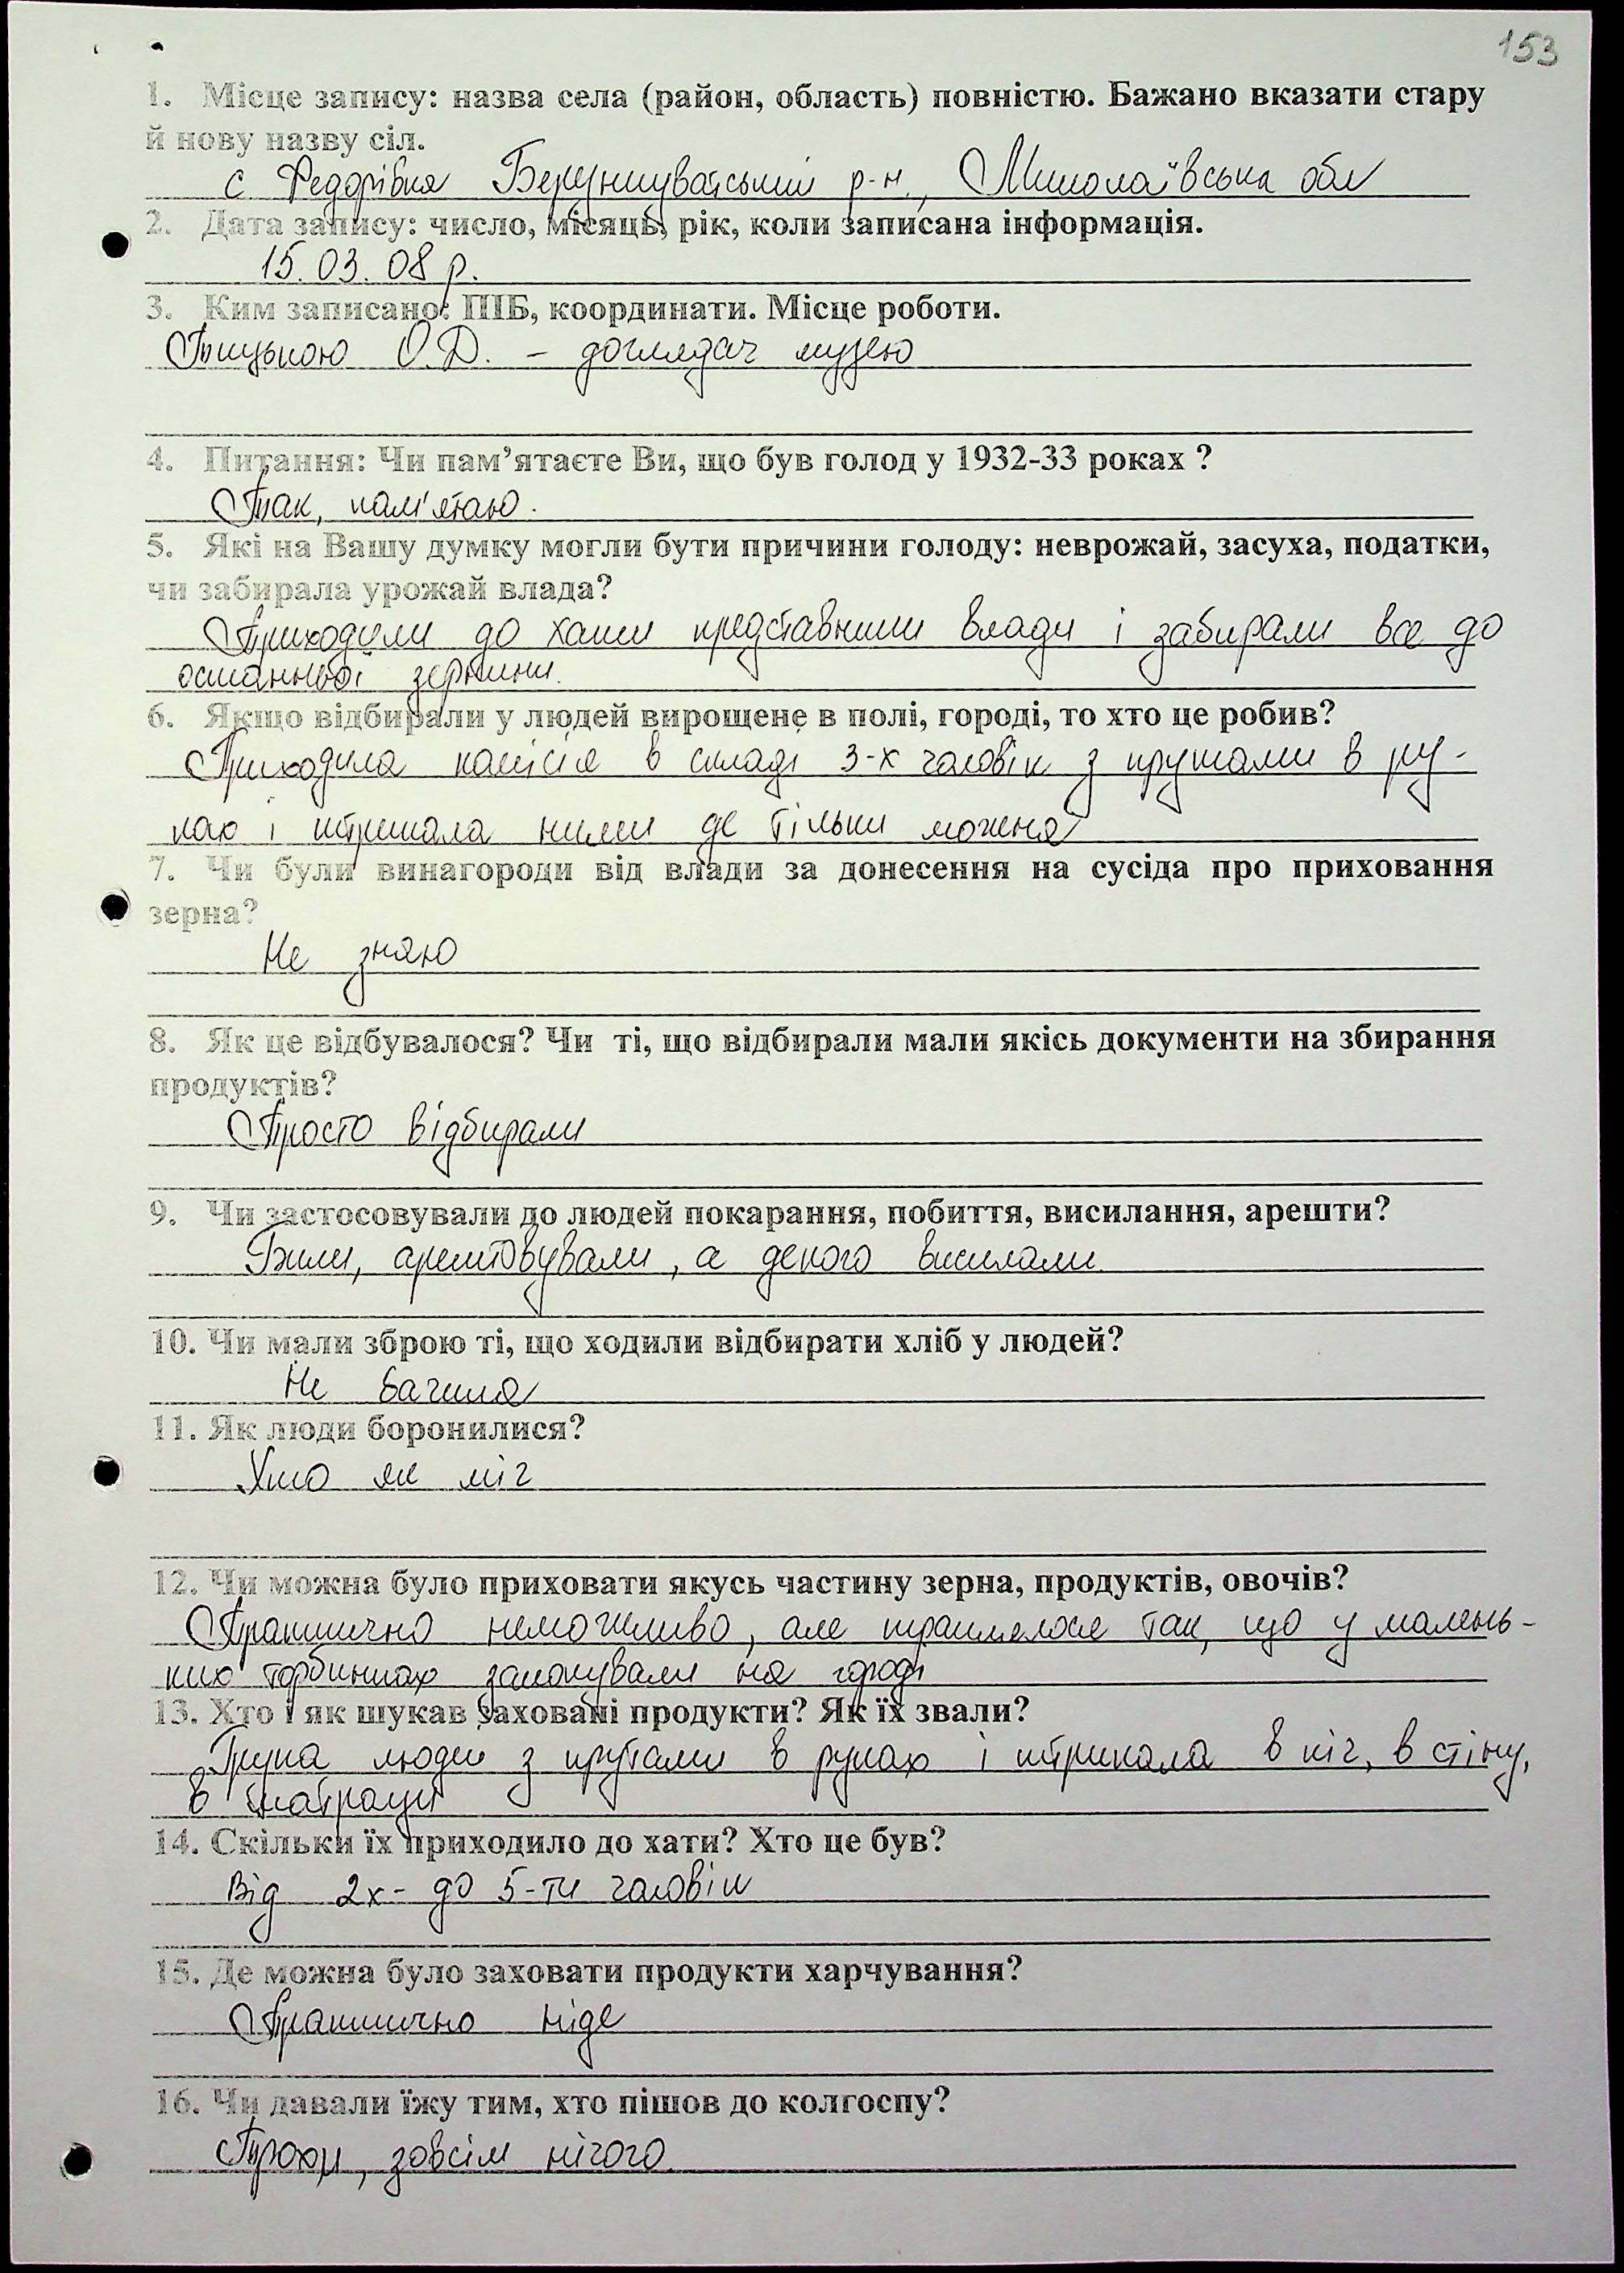 153
1. Місце запису: назва села (район, область) повністю. Бажано вказати стару
й нову назву сіл.
с Федорівка р-н., Миколаївська обл
2. Дата запису: число, місяць, рік, коли записана інформація.
15.03.08 р.
3. Ким записано: ПІБ, координати. Місце роботи.
О.Д. – доглядач музею
4. Питання: Чи пам’ятаєте Ви, що був голод у 1932-33 роках ?
Так, пам'ятаю.
5. Які на Вашу думку могли бути причини голоду: неврожай, засуха, податки,
чи забирала урожай влада?
Приходили до хати представники влади і забирали все до
останньої зернини.
6. Якщо відбирали у людей вирощене в полі, городі, то хто це робив?
Приходила комісія в складі 3-х чоловік з прутами в ру-
ках і штрикала ними де тільки можна
7. Чи були винагороди від влади за донесення на сусіда про приховання
зерна?
Не знаю
8. Як це відбувалося? Чи ті, що відбирали мали якісь документи на збирання
продуктів?
Просто відбирали
9. Чи застосовували до людей покарання, побиття, висилання, арешти?
Били, арештовували, а декого висилали.
10. Чи мали зброю ті, що ходили відбирати хліб у людей?
Не бачила
11. Як люди боронилися?
Хто як міг
12. Чи можна було приховати якусь частину зерна, продуктів, овочів?
Практично неможливо, але траплялося так, що у малень-
ких торбинках закопували на городі
13. Хто і як шукав заховані продукти? Як їх звали?
Група людей з прутами в руках і штрикала в піч, в стіну,
в матраци
14. Скільки їх приходило до хати? Хто це був?
Від 2х- до 5-ти чоловік
15. Де можна було заховати продукти харчування?
Практично ніде
16. Чи давали їжу тим, хто пішов до колгоспу?
Трохи, зовсім нічого.